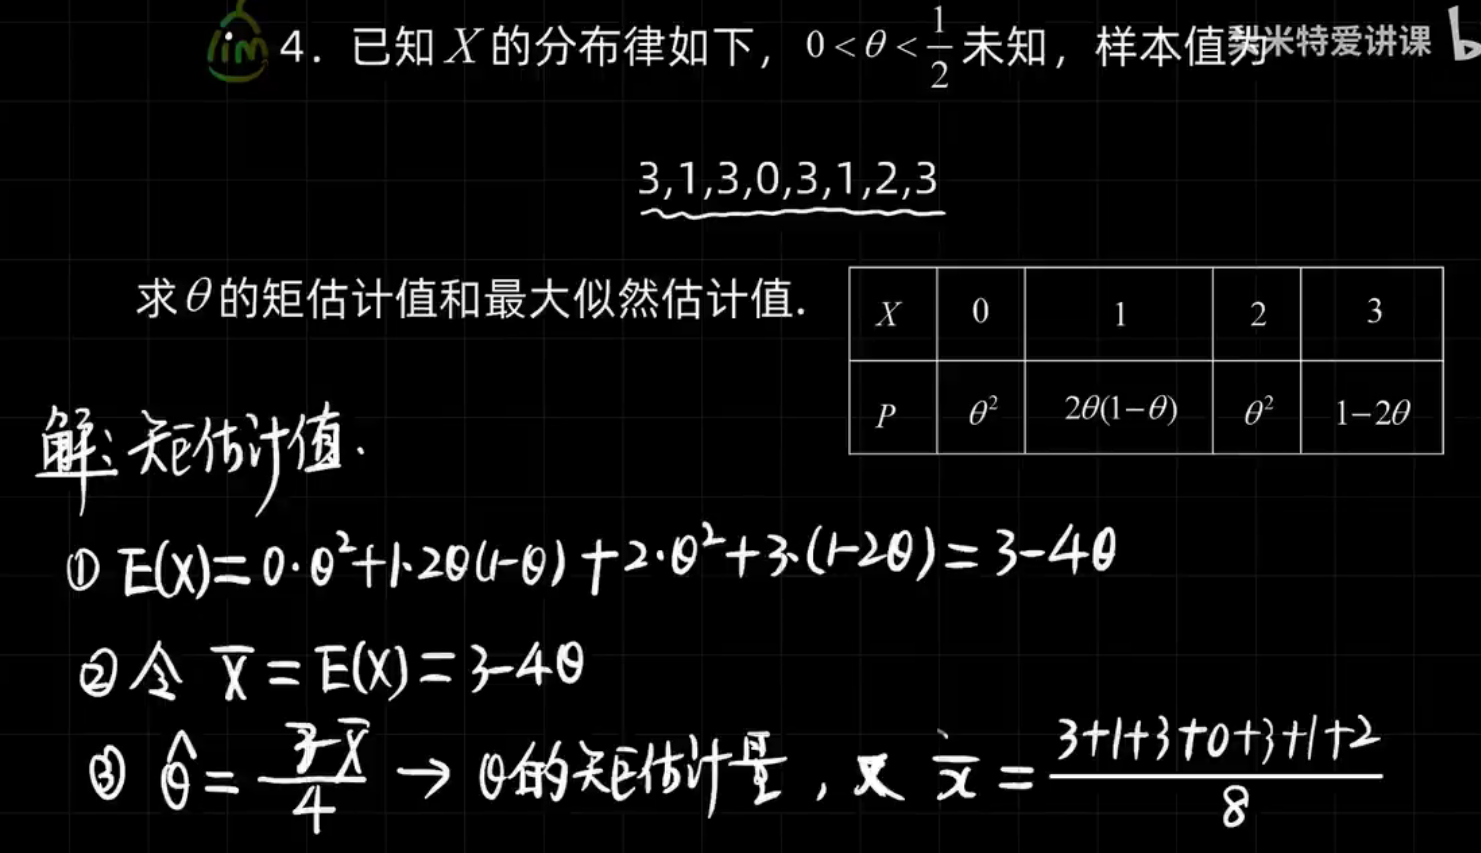 lim 4. 已知 X 的分布律如下，0<θ<1/2 未知，样本值为 梨米特爱讲课 b
3,1,3,0,3,1,2,3
求θ的矩估计值和最大似然估计值.
X 0 1 2 3
P θ² 2θ(1−θ) θ² 1−2θ
解: 矩估计值.
① E(X)=0·θ²+1·2θ(1-θ)+2·θ²+3·(1-2θ)=3-4θ
② 令 X̅=E(X)=3-4θ
③ θ̂=(3-X̅)/4 → θ的矩估计量, 又 x̅=(3+1+3+0+3+1+2)/8